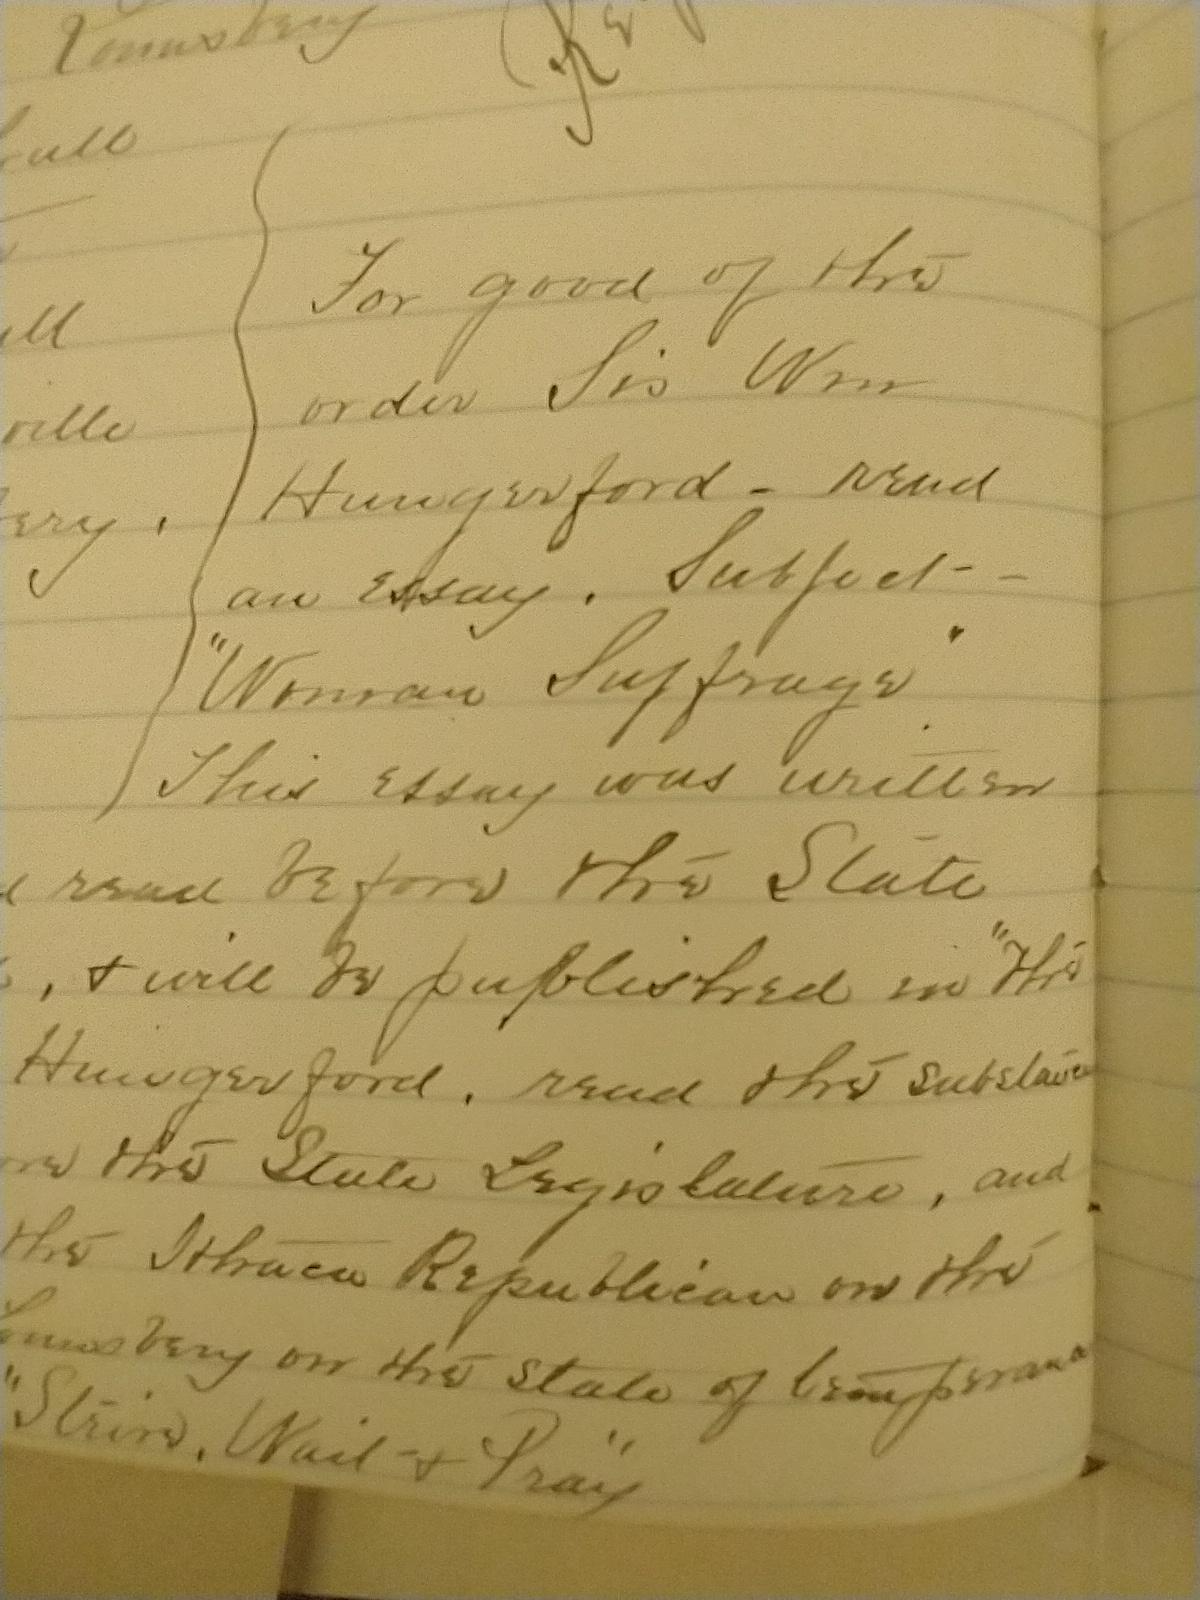 Lounsbery
For good of the
ville order Sis Wm
bery. Hungerford - read
an essay. Subject --
"Woman Suffrage"
This essay was written
read before the State
, & will be published in "the
Hungerford. read the substance
the State Legislature, and
the Ithaca Republican on the
Lounsbery on the state of temperance
"Strive, Wait & Pray"